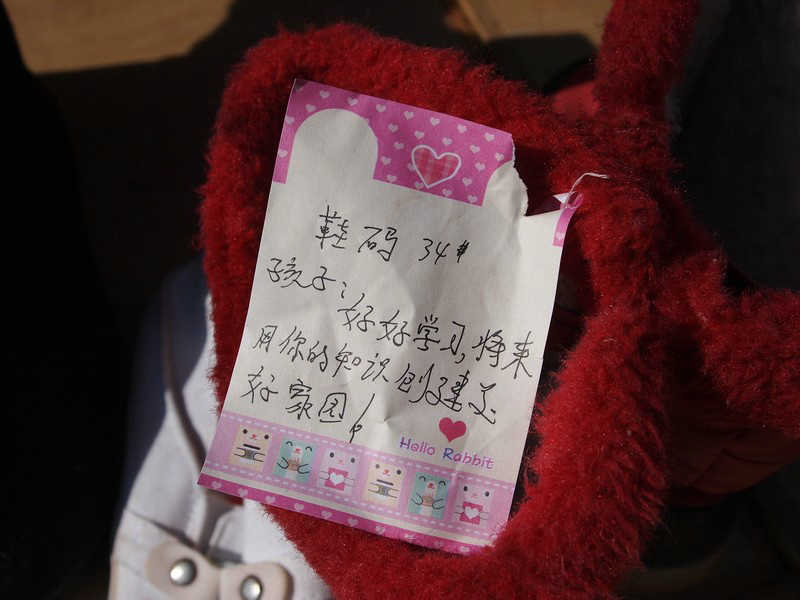 鞋码 34#
孩子:
好好学习,将来
用你的知识创建美
好家园!
Hello Rabbit